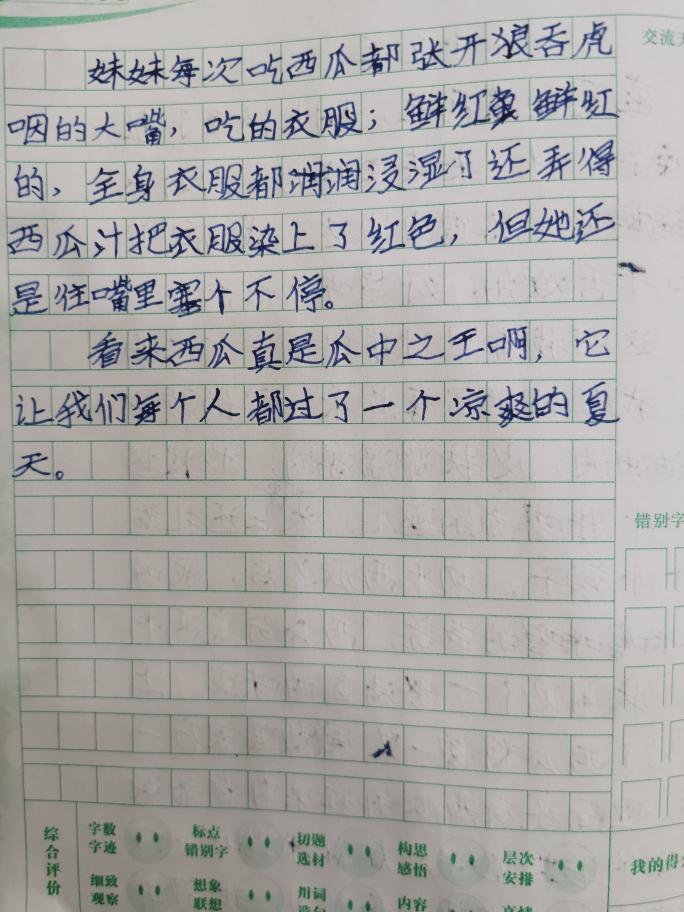 交流
妹妹每次吃西瓜都张开狼吞虎
咽的大嘴，吃的衣服；鲜红 鲜红
的，全身衣服都润润浸湿了还弄得
西瓜汁把衣服染上了红色，但她还
是往嘴里塞个不停。
看来西瓜真是瓜中之王啊，它
让我们每个人都过了一个凉爽的夏
天。
错别字
综合评价
字数字迹
标点错别字
切题选材
构思感悟
层次安排
我的得
细致观察
想象联想
用词
内容